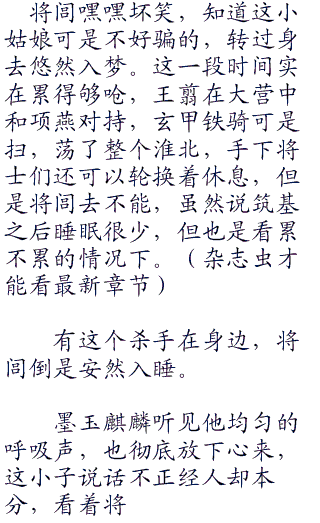 将闾嘿嘿坏笑，知道这小
姑娘可是不好骗的，转过身
去悠然入梦。这一段时间实
在累得够呛，王翦在大营中
和项燕对持，玄甲铁骑可是
扫，荡了整个淮北，手下将
士们还可以轮换着休息，但
是将闾去不能，虽然说筑基
之后睡眠很少，但也是看累
不累的情况下。（杂志虫才
能看最新章节）
有这个杀手在身边，将
闾倒是安然入睡。
墨玉麒麟听见他均匀的
呼吸声，也彻底放下心来，
这小子说话不正经人却本
分，看着将